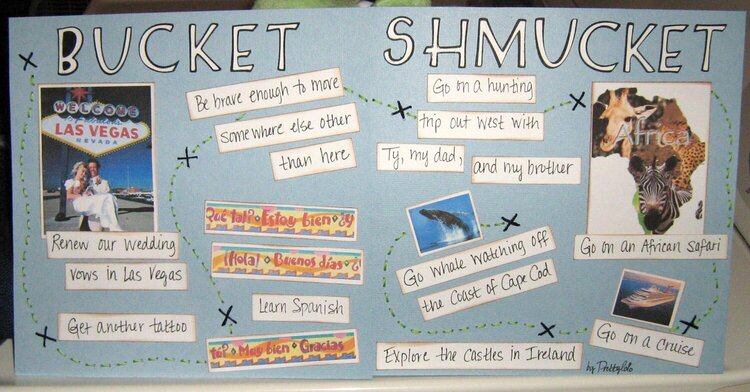 BUCKET SHMUCKET
WELCOME
TO Fabulous
LAS VEGAS
NEVADA
Renew our wedding
vows in Las Vegas
Get another tattoo
Be brave enough to move
somewhere else other
than here
Qué tal? Estoy bien ¿y
¡Hola! Buenos días
Learn Spanish
tú? Muy bien Gracias
Go on a hunting
trip out west with
Ty, my dad, and my brother
Go whale watching off
the Coast of Cape Cod
Explore the Castles in Ireland
Africa
Go on an African Safari
Go on a Cruise
by Prettylolo